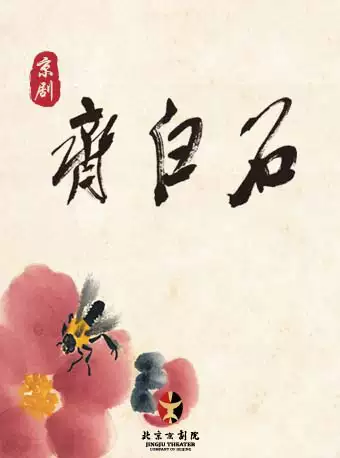 京剧
齊白石
北京京劇院
JINGJU THEATER
COMPANY OF BEIJING